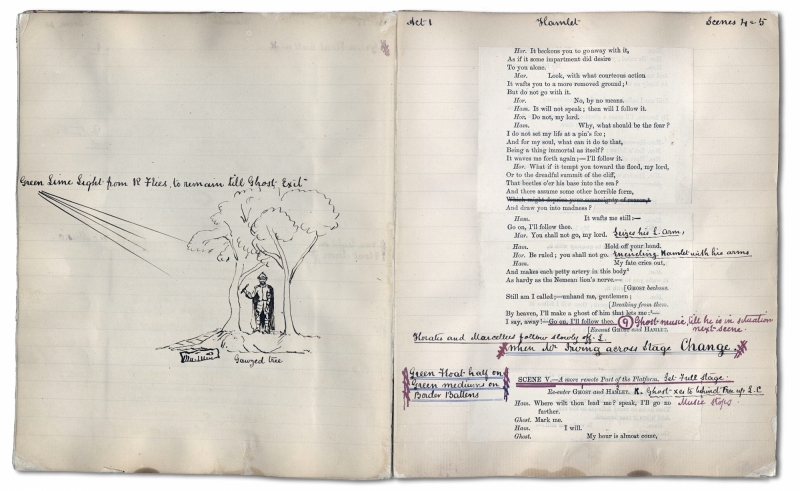 Green Lime Light from R. Flees, to remain till Ghost Exit
Gauzed tree
Act 1 Hamlet Scenes 4 & 5
Hor. It beckons you to go away with it,
As if it some impartment did desire
To you alone.
Mar. Look, with what courteous action
It wafts you to a more removed ground;¹
But do not go with it.
Hor. No, by no means.
Ham. It will not speak; then will I follow it.
Hor. Do not, my lord.
Ham. Why, what should be the fear?
I do not set my life at a pin's fee;
And for my soul, what can it do to that,
Being a thing immortal as itself?
It waves me forth again;—I'll follow it.
Hor. What if it tempt you toward the flood, my lord,
Or to the dreadful summit of the cliff,
That beetles o'er his base into the sea?
And there assume some other horrible form,
Which might deprive your sovereignty of reason,
And draw you into madness?
Ham. It wafts me still:—
Go on, I'll follow thee.
Mar. You shall not go, my lord. Seizes his L. arm,
Ham. Hold off your hand.
Hor. Be ruled; you shall not go. encircling Hamlet with his arms
Ham. My fate cries out,
And makes each petty artery in this body
As hardy as the Nemean lion's nerve.—
[GHOST beckons.
Still am I called;—unhand me, gentlemen;
[Breaking from them.
By heaven, I'll make a ghost of him that lets me:—
I say, away!—Go on, I'll follow thee. (9) Ghost music, till he is in situation
[Exeunt GHOST and HAMLET. next scene.
Horatio and Marcellus follow slowly off L.
When Mr Irving across Stage Change.
Green Float half on
Green mediums on
Border Battens
SCENE V.—A more remote Part of the Platform. Set Full Stage.
Re-enter GHOST and HAMLET. R. Ghost xes to behind Tree up L.C.
Ham. Where wilt thou lead me? speak, I'll go no Music stops.
further.
Ghost. Mark me.
Ham. I will.
Ghost. My hour is almost come,